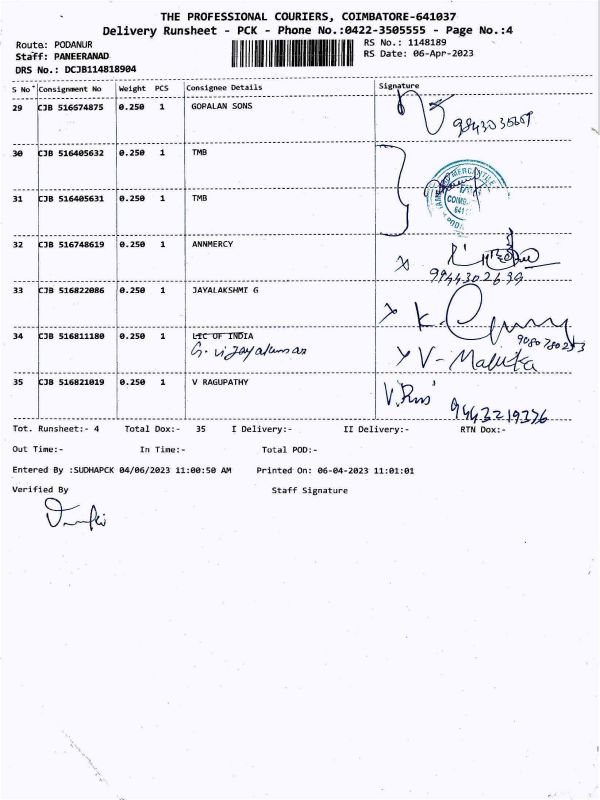 THE PROFESSIONAL COURIERS, COIMBATORE-641037
Delivery Runsheet - PCK - Phone No.:0422-3505555 - Page No.:4
Route: PODANUR
RS No.: 1148189
Staff: PANEERANAD
RS Date: 06-Apr-2023
DRS No.: DCJB114818904
S No Consignment No Weight PCS Consignee Details Signature
29 CJB 516674875 0.250 1 GOPALAN SONS
30 CJB 516405632 0.250 1 TMB
31 CJB 516405631 0.250 1 TMB
MERCANTILE
COIMB
641
32 CJB 516748619 0.250 1 ANNMERCY
9944302639
33 CJB 516822086 0.250 1 JAYALAKSHMI G
K.
9080780253
34 CJB 516811180 0.250 1 LIC OF INDIA
G. vijayakumar
V- Malika
35 CJB 516821019 0.250 1 V RAGUPATHY
9443219376
Tot. Runsheet:- 4 Total Dox:- 35 I Delivery:- II Delivery:- RTN Dox:-
Out Time:- In Time:- Total POD:-
Entered By :SUDHAPCK 04/06/2023 11:00:50 AM Printed On: 06-04-2023 11:01:01
Verified By Staff Signature